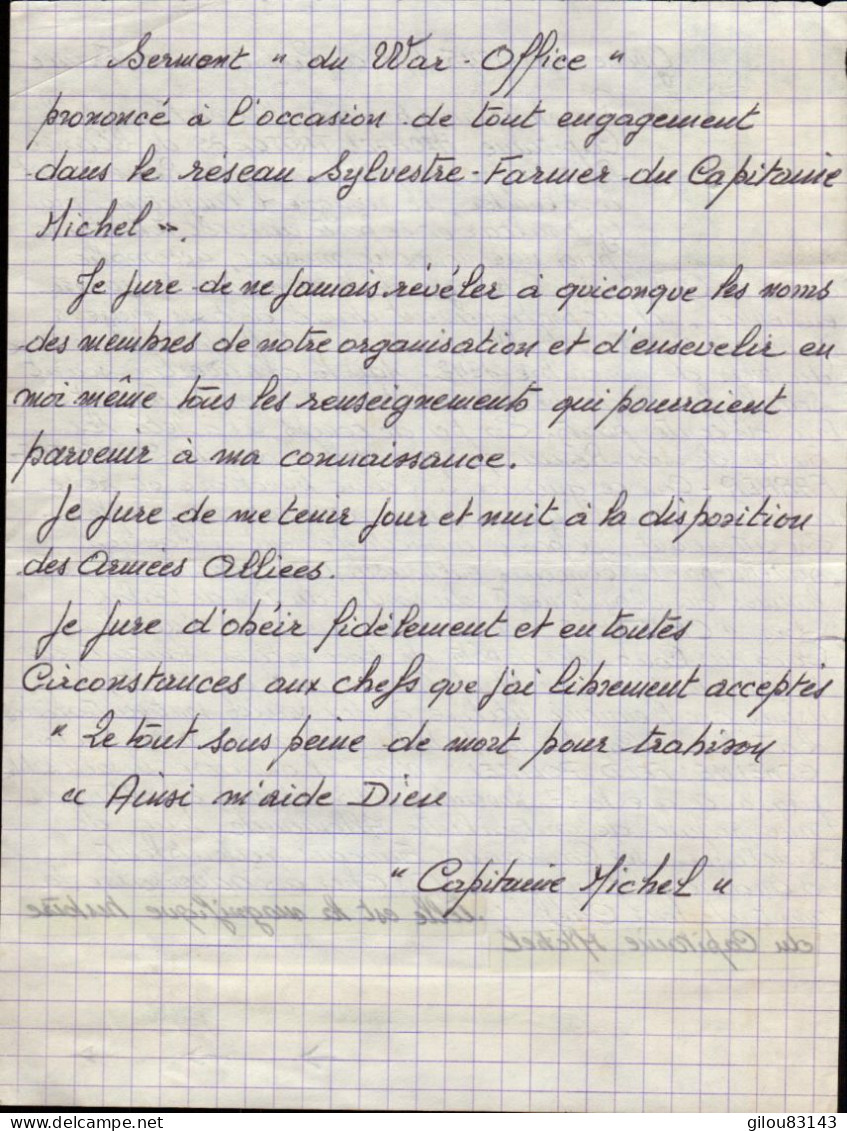 Serment " du War-Office "
prononcé à l'occasion de tout engagement
dans le réseau Sylvestre-Farmer du Capitaine
Michel ".
Je jure de ne jamais révéler à quiconque les noms
des membres de notre organisation et d'ensevelir en
moi même tous les renseignements qui pourraient
parvenir à ma connaissance.
Je jure de me tenir jour et nuit à la disposition
des Armées Alliees.
Je jure d'obéir fidèlement et en toutes
Circonstances aux chefs que j'ai librement acceptés
" Le tout sous peine de mort pour trahison
" Ainsi m'aide Dieu
" Capitaine Michel "
telle est la magnifique histoire
du Capitaine Michel
delcampe.net
gilou83143